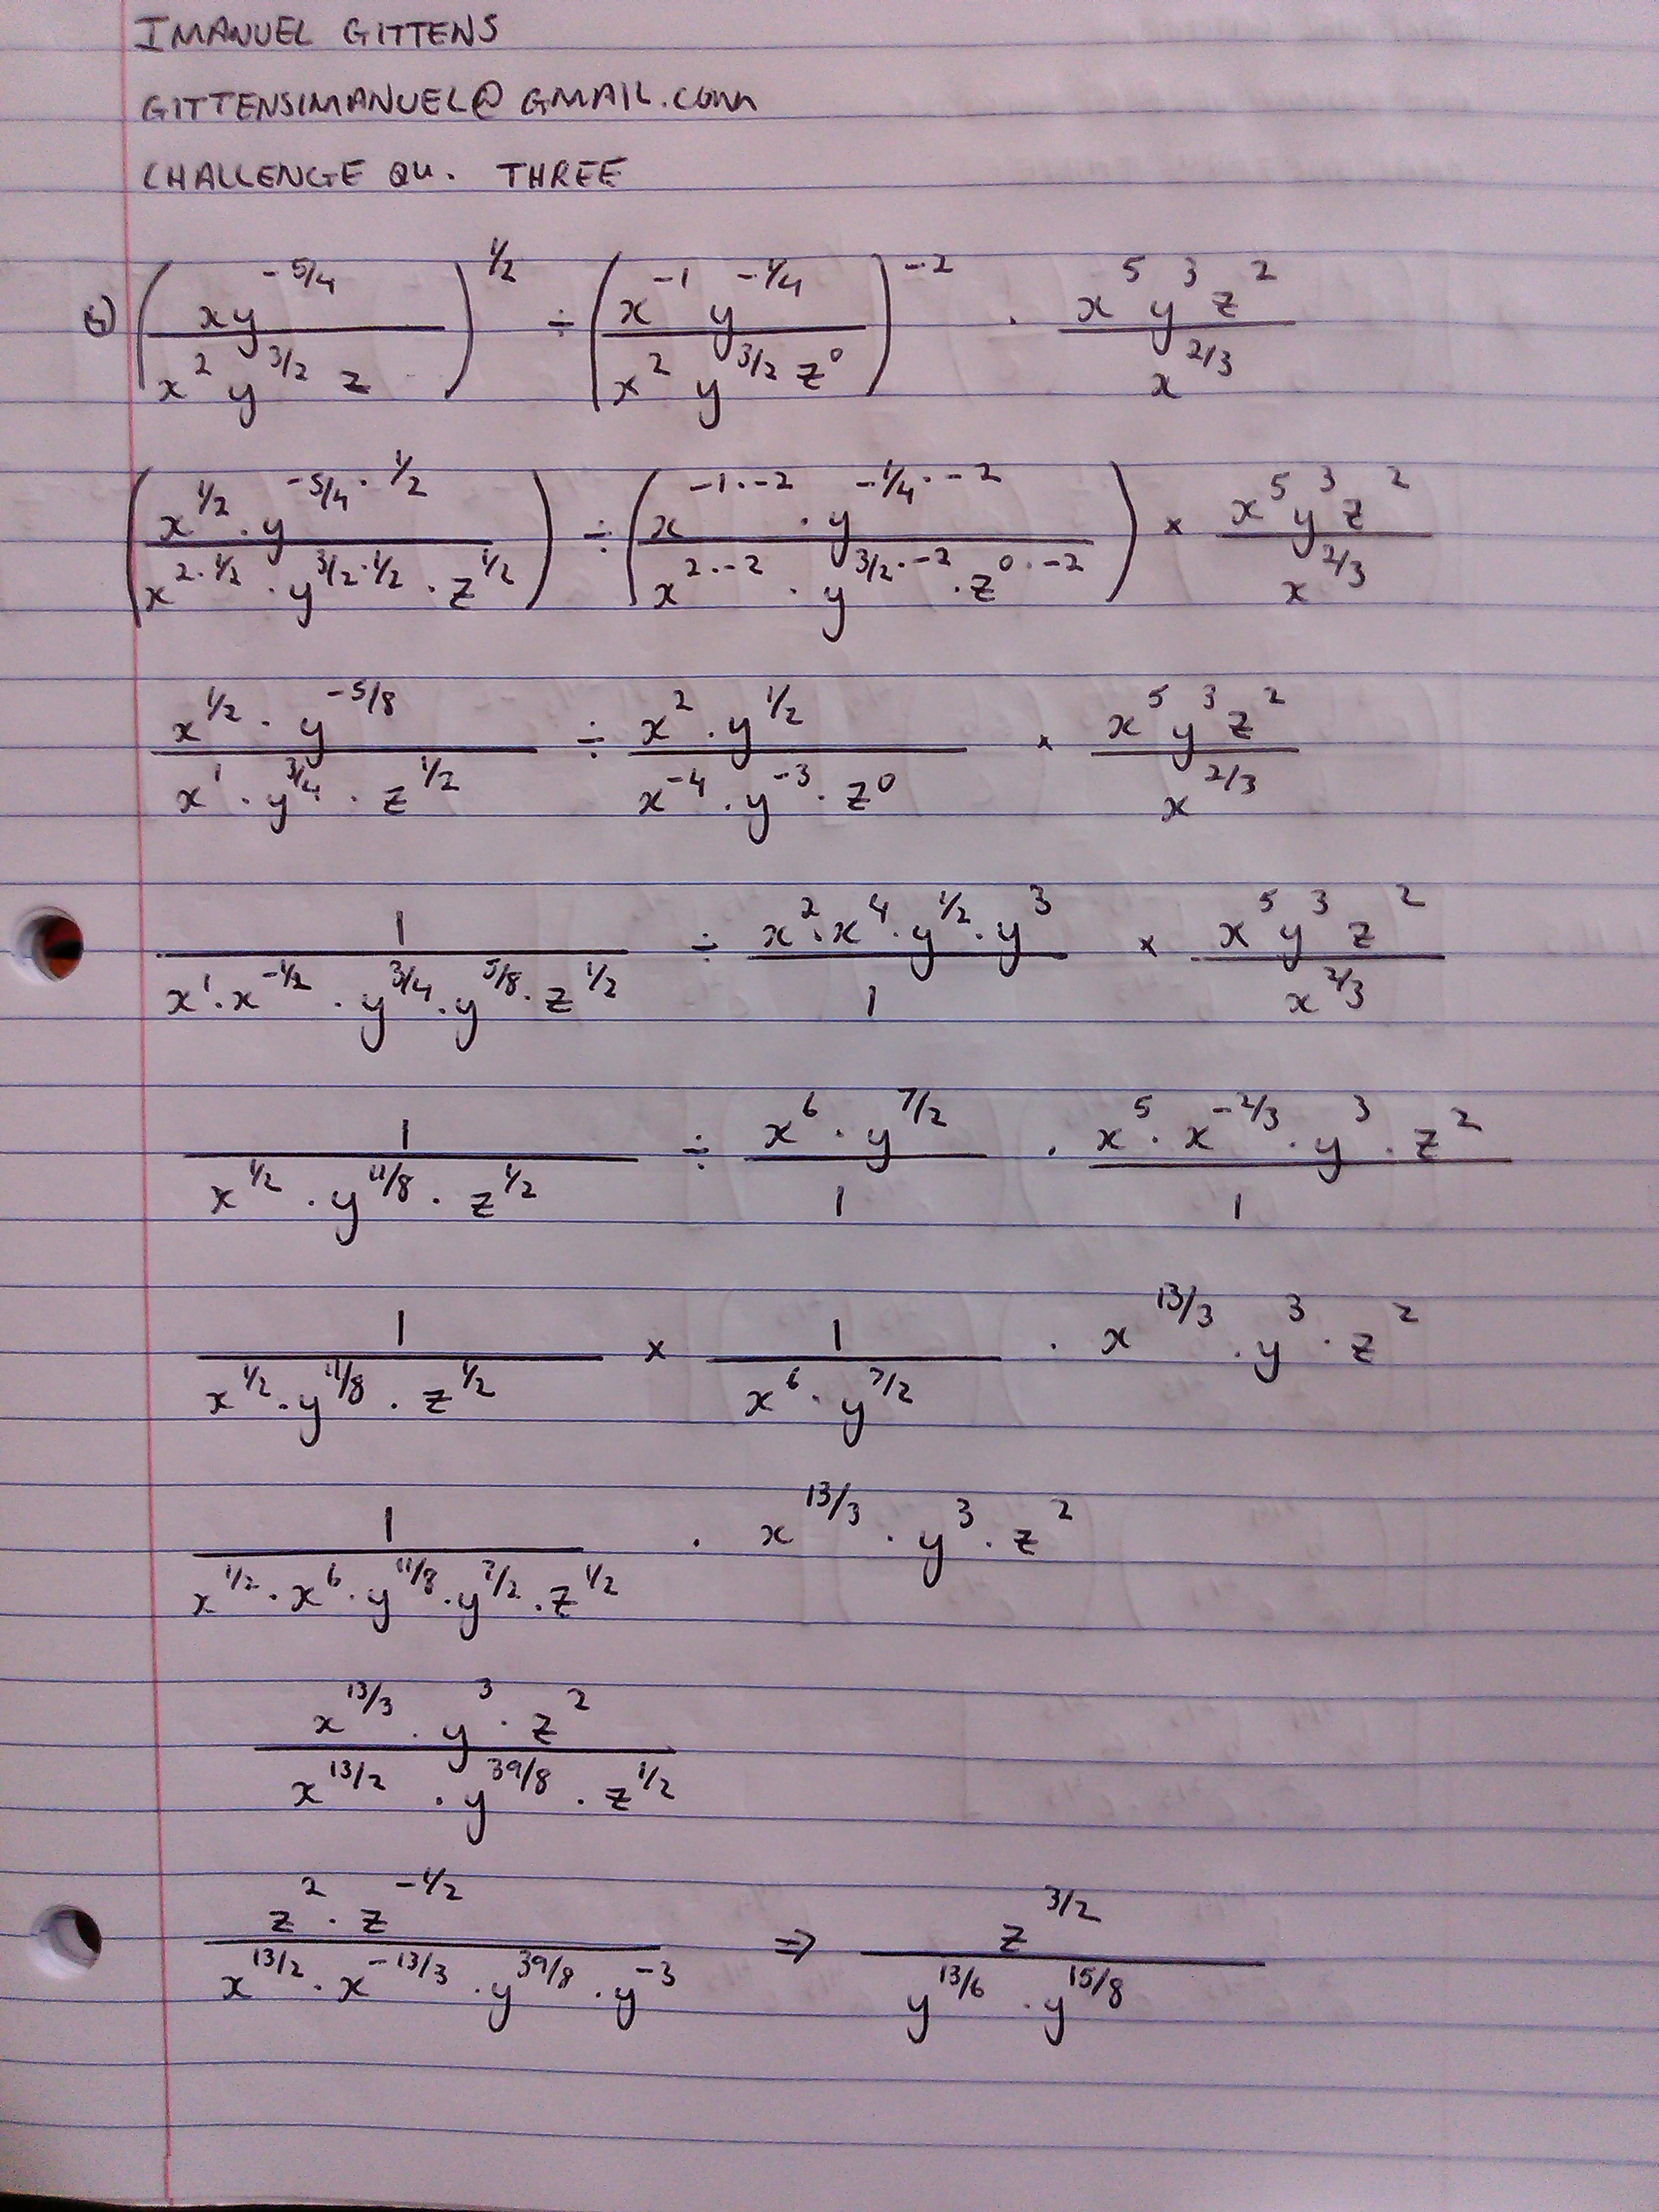 IMANUEL GITTENS
GITTENSIMANUEL@GMAIL.COM
CHALLENGE QU. THREE
G) (xy^(-5/4) / x^2 y^(3/2) z)^(1/2) ÷ (x^(-1) y^(-1/4) / x^2 y^(3/2) z^0)^(-2) · x^5 y^3 z^2 / x^(2/3)
(x^(1/2) · y^(-5/4 · 1/2) / x^(2·1/2) · y^(3/2·1/2) · z^(1/2)) ÷ (x^(-1·-2) · y^(-1/4·-2) / x^(2·-2) · y^(3/2·-2) · z^(0·-2)) × x^5 y^3 z^2 / x^(2/3)
x^(1/2) · y^(-5/8) / x^1 · y^(3/4) · z^(1/2) ÷ x^2 · y^(1/2) / x^(-4) · y^(-3) · z^0 × x^5 y^3 z^2 / x^(2/3)
1 / x^1 · x^(-1/2) · y^(3/4) · y^(5/8) · z^(1/2) ÷ x^2 · x^4 · y^(1/2) · y^3 / 1 × x^5 y^3 z^2 / x^(2/3)
1 / x^(1/2) · y^(11/8) · z^(1/2) ÷ x^6 · y^(7/2) / 1 · x^5 · x^(-2/3) · y^3 · z^2 / 1
1 / x^(1/2) · y^(11/8) · z^(1/2) × 1 / x^6 · y^(7/2) · x^(13/3) · y^3 · z^2
1 / x^(1/2) · x^6 · y^(11/8) · y^(7/2) · z^(1/2) · x^(13/3) · y^3 · z^2
x^(13/3) · y^3 · z^2 / x^(13/2) · y^(39/8) · z^(1/2)
z^2 · z^(-1/2) / x^(13/2) · x^(-13/3) · y^(39/8) · y^(-3) ⇒ z^(3/2) / y^(13/6) · y^(15/8)